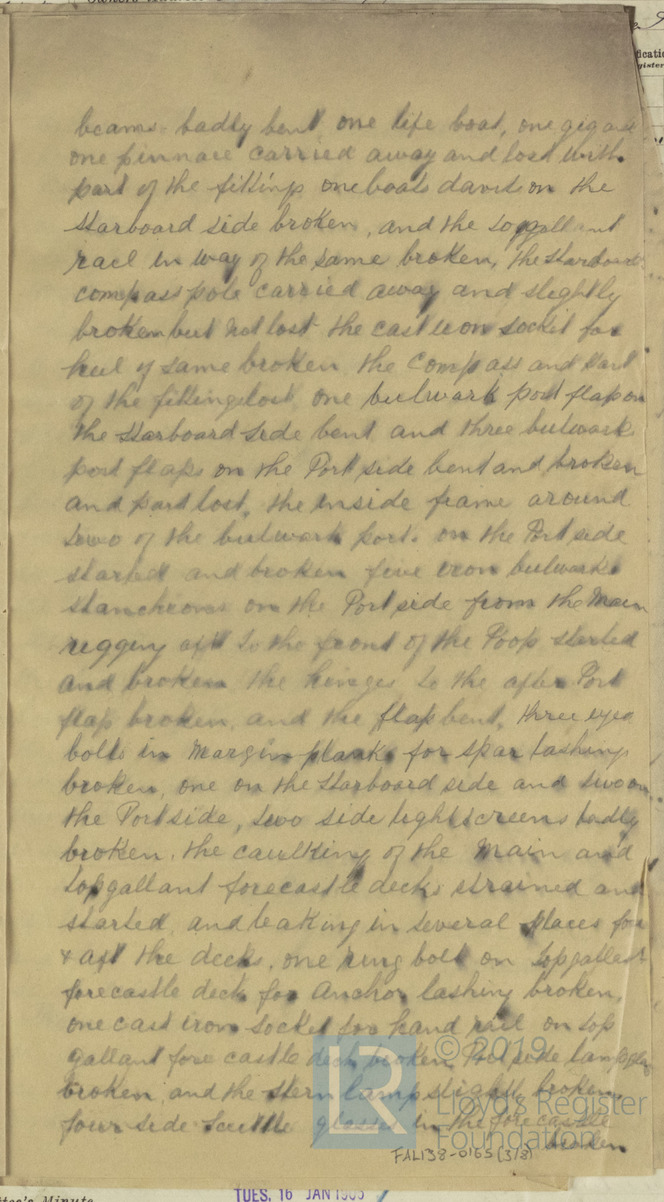 beams badly bent one life boat, one gig and
one pinnace carried away and lost with
part of the fittings one boats davit on the
starboard side broken, and the topgallant
rael in way of the same broken, the starboard
compass pole carried away and slightly
broken but not lost the cast iron socket for
heel of same broken the compass and part
of the fittings lost, one bulwark port flap on
the starboard side bent and three bulwark
port flaps on the Port side bent and broken
and part lost, the inside frame around
two of the bulwark ports on the Port side
started and broken five iron bulwark
stanchions on the Port side from the Main
rigging aft to the front of the Poop started
and broken the hinges to the after Port
flap broken, and the flap bent, three eye
bolts in Margin planks for spar lashing
broken, one on the starboard side and two on
the Port side, two side light screens badly
broken, the caulking of the Main and
topgallant forecastle decks strained and
started, and leaking in several places for
& aft the decks, one ring bolt on topgallant
forecastle deck for Anchor lashing broken,
one cast iron socket for hand rail on top
gallant fore castle deck broken, Port side lamp
broken, and the stern lamp slightly broken
four side Scuttle glasses in the fore castle
broken
© 2019
Lloyd's Register
Foundation
LR
FAL138-0165 (3/8)
TUES. 16 JAN